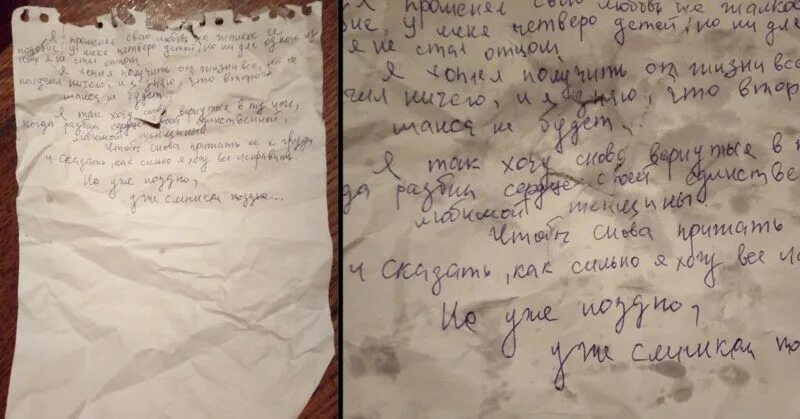 Я променял свою любовь на жалкое ее
подобие, у меня четверо детей, но ни для одного из
них я не стал отцом.
Я хотел получить от жизни все, но не
получил ничего, и я знаю, что второго
шанса не будет...
Я так хочу снова вернуться в ту ночь,
когда разбил сердце своей единственной,
любимой женщины
Чтобы снова прижать ее к груди
и сказать, как сильно я хочу все исправить
Но уже поздно,
уже слишком поздно...
я променял свою любовь на жалкое
бие, у меня четверо детей, но ни для
я не стал отцом.
Я хотел получить от жизни все
чил ничего, и я знаю, что второ
шанса не будет...
Я так хочу снова вернуться в т
да разбил сердце своей единстве
любимой женщины
Чтобы снова прижать
и сказать, как сильно я хочу все ис
Но уже поздно,
уже слишком по